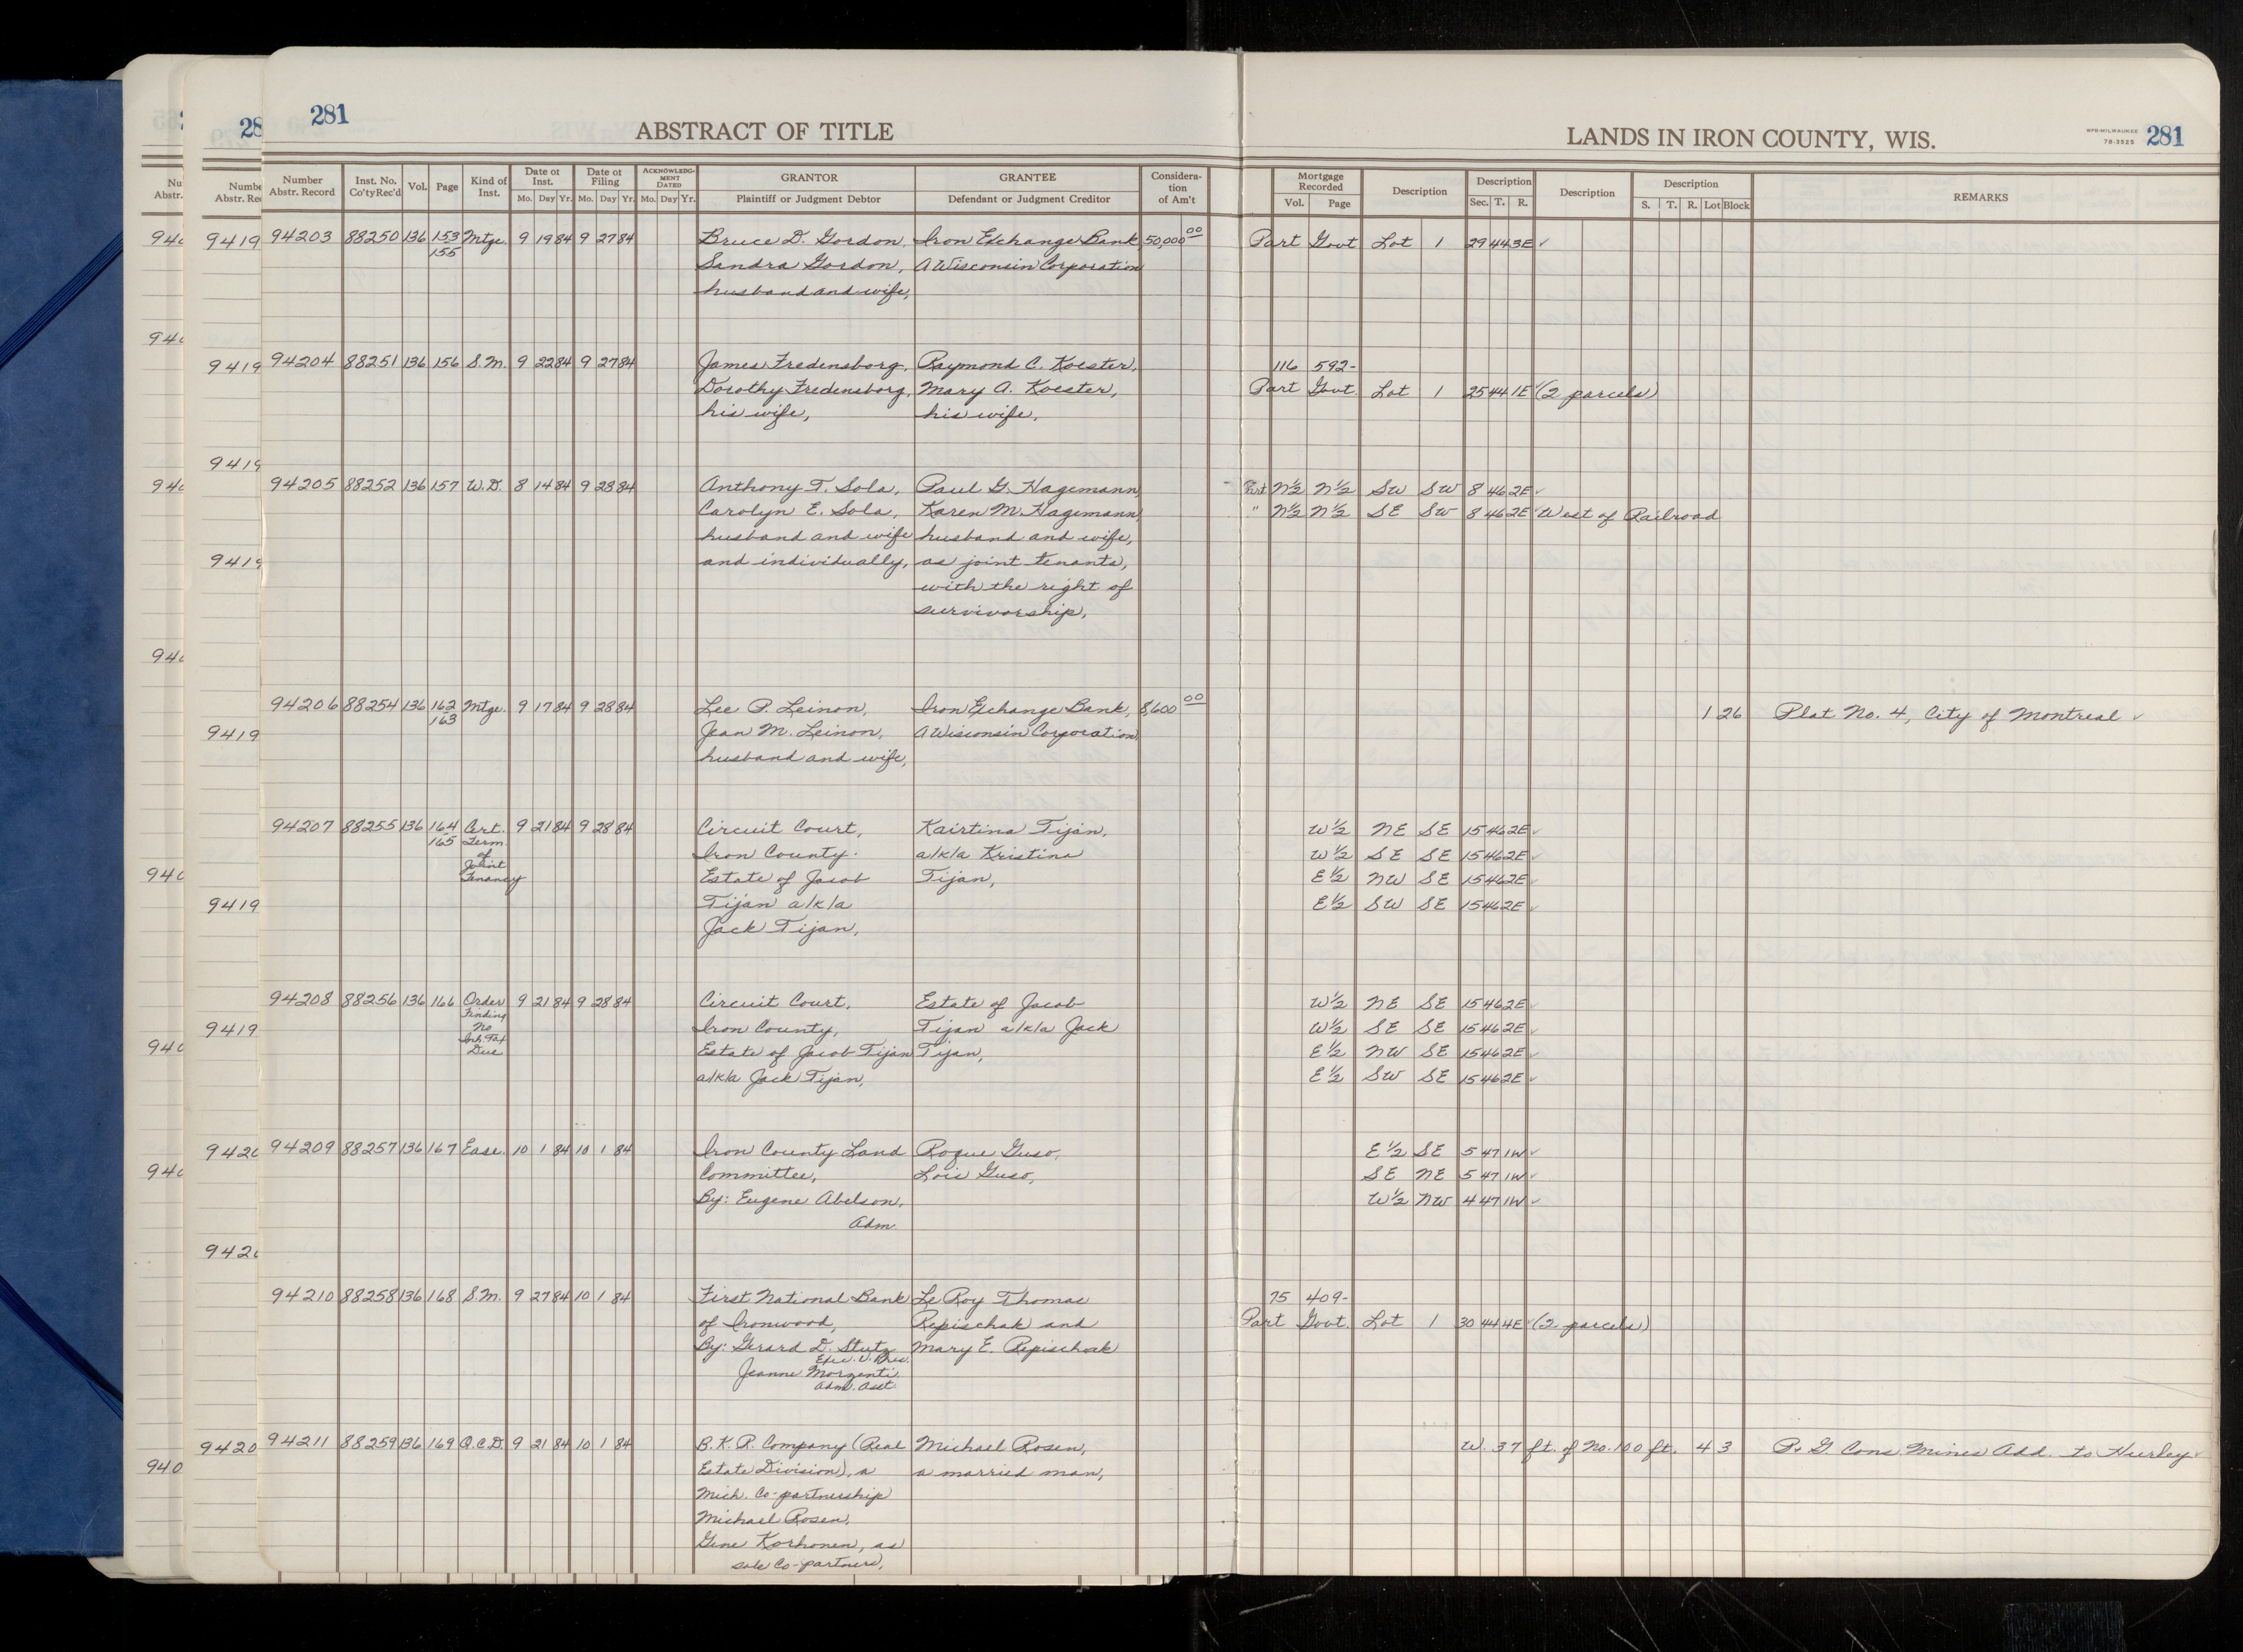 281
ABSTRACT OF TITLE
LANDS IN IRON COUNTY, WIS.
WPR-MILWAUKEE
78-3525
281
Number Abstr. Record
Inst. No. Co'ty Rec'd
Vol.
Page
Kind of Inst.
Date of Inst. Mo. Day Yr.
Date of Filing Mo. Day Yr.
ACKNOWLEDGMENT DATED Mo. Day Yr.
GRANTOR Plaintiff or Judgment Debtor
GRANTEE Defendant or Judgment Creditor
Consideration of Am't
Mortgage Recorded Vol. Page
Description
Description Sec. T. R.
Description
Description S. T. R. Lot Block
REMARKS
94203 88250 136 153 Mtge. 9 19 84 9 27 84 Bruce D. Gordon, Iron Exchange Bank, 50,000 00 Part Govt Lot 1 29 44 3E ✓
155 Sandra Gordon, A Wisconsin Corporation
husband and wife,
94204 88251 136 156 S.M. 9 22 84 9 27 84 James Fredensborg, Raymond C. Koester, 116 592-
Dorothy Fredensborg, Mary A. Koester, Part Govt. Lot 1 25 44 1E (2 parcels)
his wife, his wife,
94205 88252 136 157 W.D. 8 14 84 9 28 84 Anthony T. Sola, Paul G. Hagemann, Part N½ N½ SW SW 8 46 2E ✓
Carolyn E. Sola, Karen M. Hagemann, " N½ N½ SE SW 8 46 2E West of Railroad
husband and wife husband and wife,
and individually, as joint tenants,
with the right of
survivorship,
94206 88254 136 162 Mtge. 9 17 84 9 28 84 Lee P. Leinon, Iron Exchange Bank, 8,600 00 1 26 Plat No. 4, City of Montreal ✓
163 Jean M. Leinon, A Wisconsin Corporation,
husband and wife,
94207 88255 136 164 Cert. 9 21 84 9 28 84 Circuit Court, Kairtina Tijan, W½ NE SE 15 46 2E ✓
165 Term. Iron County. a/k/a Kristina W½ SE SE 15 46 2E ✓
of Joint Estate of Jacob Tijan, E½ NW SE 15 46 2E ✓
Tenancy Tijan a/k/a E½ SW SE 15 46 2E ✓
Jack Tijan,
94208 88256 136 166 Order 9 21 84 9 28 84 Circuit Court, Estate of Jacob W½ NE SE 15 46 2E ✓
Finding No Iron County, Tijan a/k/a Jack W½ SE SE 15 46 2E ✓
Inh. Tax Due Estate of Jacob Tijan Tijan, E½ NW SE 15 46 2E ✓
a/k/a Jack Tijan, E½ SW SE 15 46 2E ✓
94209 88257 136 167 Ease. 10 1 84 10 1 84 Iron County Land Roque Guso, E½ SE 5 47 1W ✓
Committee, Lois Guso, SE NE 5 47 1W ✓
By: Eugene Abelson, W½ NW 4 47 1W ✓
Adm.
94210 88258 136 168 S.M. 9 27 84 10 1 84 First National Bank Le Roy Thomas 75 409-
of Ironwood, Repischak and Part Govt. Lot 1 30 44 4E (2 parcels)
By: Gerard D. Stutz Mary E. Repischak
Exec. V. Pres.
Jeanne Morzenti,
Adm. Asst.
94211 88259 136 169 Q.C.D. 9 21 84 10 1 84 B.K.R. Company (Real Michael Rosen, W. 37 ft. of No. 100 ft. 4 3 P. & G. Cons. Mines Add. to Hurley ✓
Estate Division), a a married man,
Mich. Co-partnership
Michael Rosen,
Gene Korhonen, as
sole Co-partners,